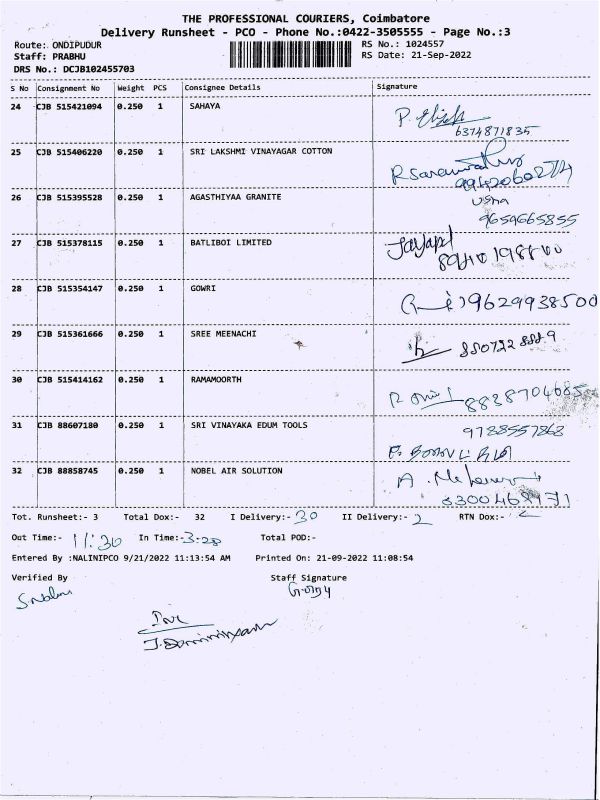 THE PROFESSIONAL COURIERS, Coimbatore
Delivery Runsheet - PCO - Phone No.:0422-3505555 - Page No.:3
Route: ONDIPUDUR
RS No.: 1024557
Staff: PRABHU
RS Date: 21-Sep-2022
DRS No.: DCJB102455703
S No Consignment No Weight PCS Consignee Details Signature
24 CJB 515421094 0.250 1 SAHAYA
6374871835
25 CJB 515406220 0.250 1 SRI LAKSHMI VINAYAGAR COTTON
26 CJB 515395528 0.250 1 AGASTHIYAA GRANITE
usha
9659665855
27 CJB 515378115 0.250 1 BATLIBOI LIMITED
28 CJB 515354147 0.250 1 GOWRI
9629938500
29 CJB 515361666 0.250 1 SREE MEENACHI
30 CJB 515414162 0.250 1 RAMAMOORTH
8838704685
31 CJB 88607180 0.250 1 SRI VINAYAKA EDUM TOOLS
9788557868
32 CJB 88858745 0.250 1 NOBEL AIR SOLUTION
Tot. Runsheet:- 3 Total Dox:- 32 I Delivery:- 30 II Delivery:- 2 RTN Dox:-
Out Time:- 11:30 In Time:-3:20 Total POD:-
Entered By :NALINIPCO 9/21/2022 11:13:54 AM Printed On: 21-09-2022 11:08:54
Verified By Staff Signature